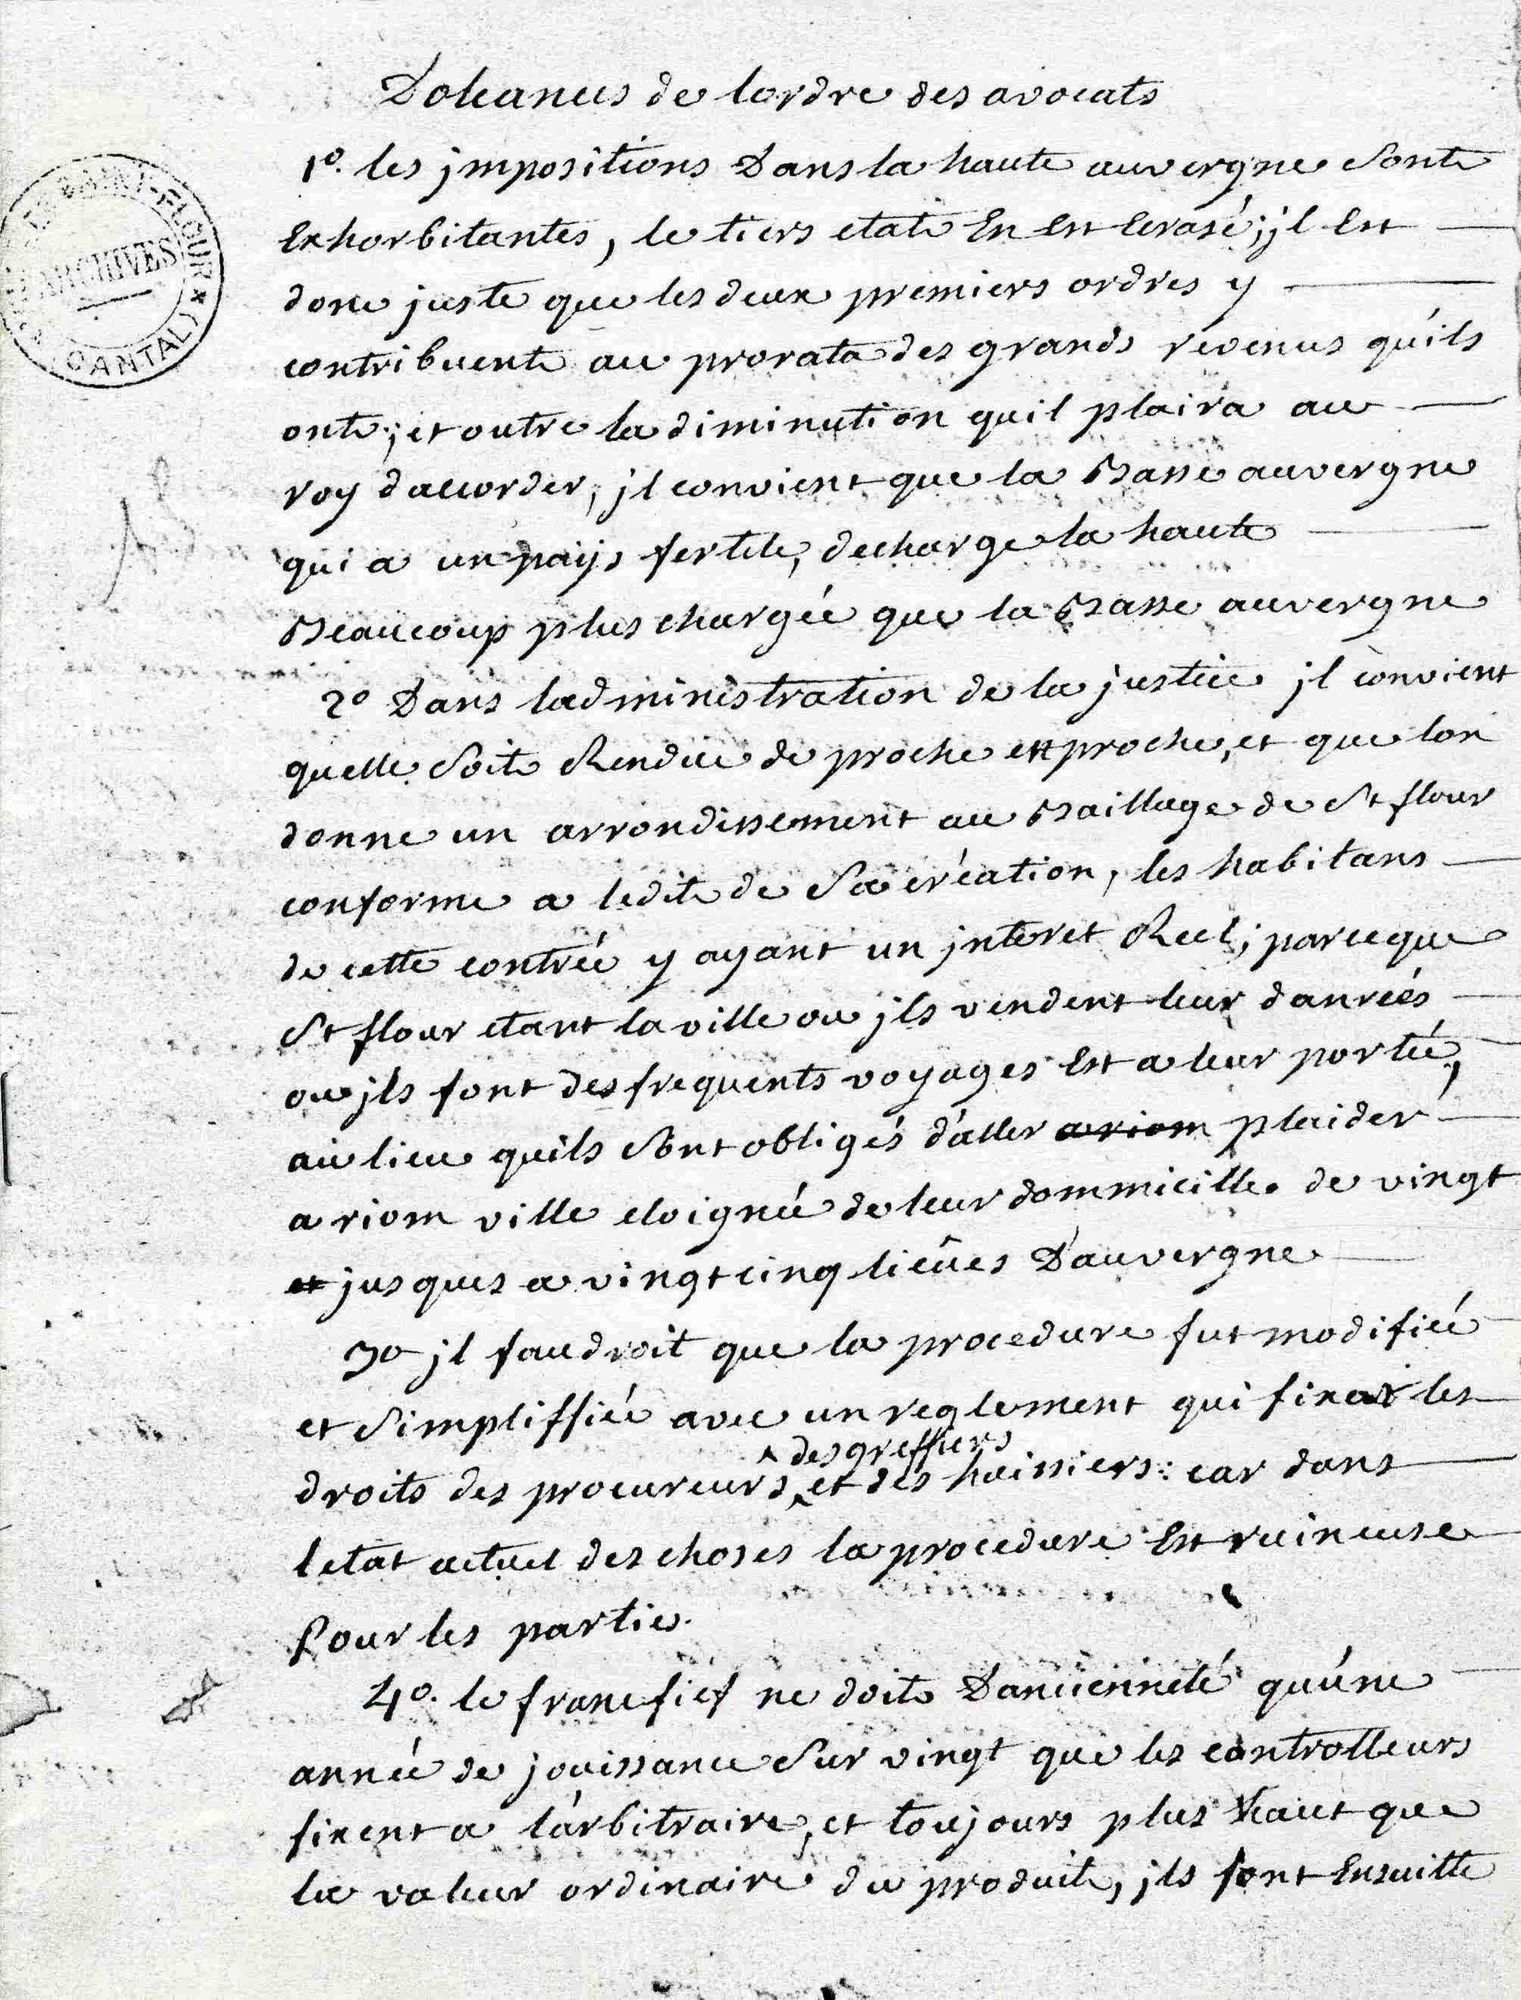 Doleances de lordre des avocats
1º. les jmpositions Dans la haute auvergne Sont
Exhorbitantes, le tiers etat En Est Ecrasé; jl Est
donc juste que les deux premiers ordres y
contribuent au prorata des grands revenus qu'ils
ont; et outre la diminution quil plaira au
roy daccorder, jl convient que la Basse auvergne
qui a un pays fertile, decharge la haute
Beaucoup plus chargée que la Basse auvergne
2º Dans ladministration de la justice jl convient
quelle Soit Rendue de proche en proche, et que lon
donne un arrondissement au Baillage de St flour
conforme a ledit de Sa création, les habitans
de cette contrée y ayant un jnteret Reel; parceque
St flour etant la ville ou jls vendent leur danrées
ou jls font des frequents voyages Est a leur portée,
au lieu quils Sont obligés d'aller a riom plaider
a riom ville eloignée de leur dommicille. de vingt
et jusques a vingt cinq lieües D'auvergne
3º jl faudroit que la procedure fut modifiée
et Simpliffiée avec un reglement qui fixat les
des greffiers
droits des procureurs, et des huissiers: car dans
letat actuel des choses la procedure Est ruineuse
Pour les parties.
4º. le franc fief ne doit D'ancienneté qu'une
année de jouissance Sur vingt que les controlleurs
fixent a l'arbitraire, et toujours plus haut que
la valeur ordinaire du produit, jls font Ensuitte
SAINT-FLOUR
ARCHIVES
(CANTAL)